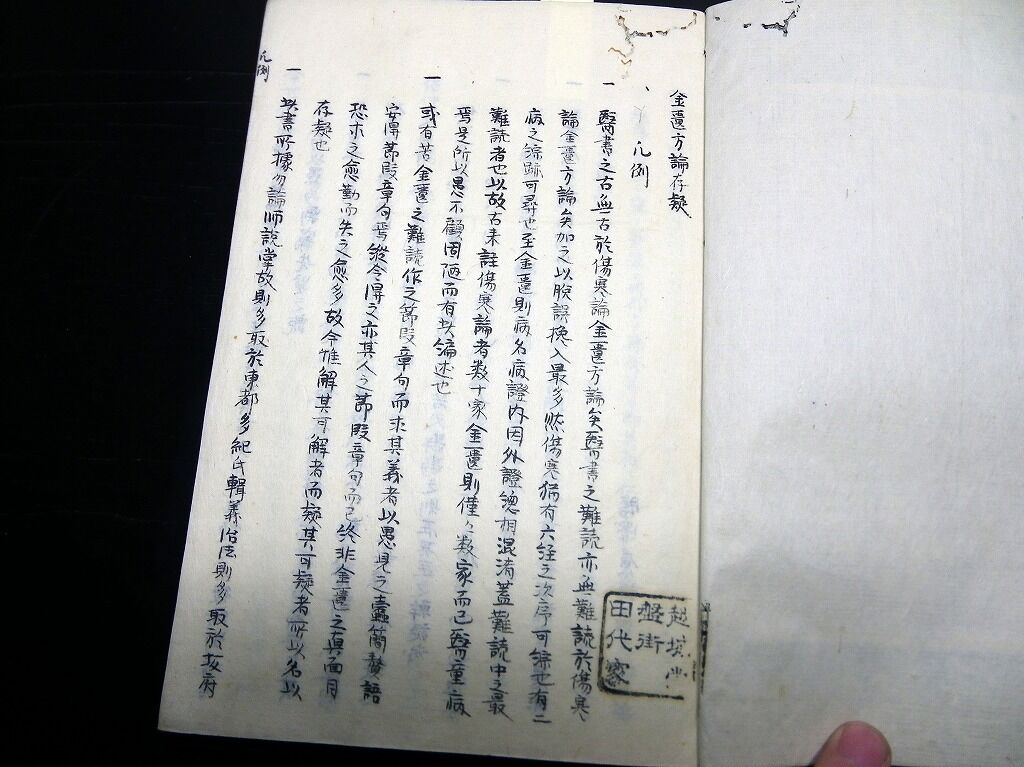 金匱方論存疑
凡例
一 醫書之古無古於傷寒論金匱方論矣醫書之難読亦無難読於傷寒
論金匱方論矣加之以脫誤攙入最多然傷寒猶有六經之次序可綜也有二
病之綜跡可尋也至金匱則病名病證內因外證總相混淆蓋難読中之最
難読者也以故古来註傷寒論者数十家金匱則僅々数家而已醫童病
焉是所以愚不顧固陋而有此編述也
一 或有苦金匱之難読作之節段章句而求其義者以愚見之蠧簡贅語
安得節段章句焉縱令得之亦其人之節段章句而已終非金匱之真面目
恐求之愈勤而失之愈多故今惟解其可解者而疑其可疑者所以名以
存疑也
一 此書所據勿論師說掌故則多取於東都多紀氏輯義治法則多取於坂府
凡例
盤街
田代家